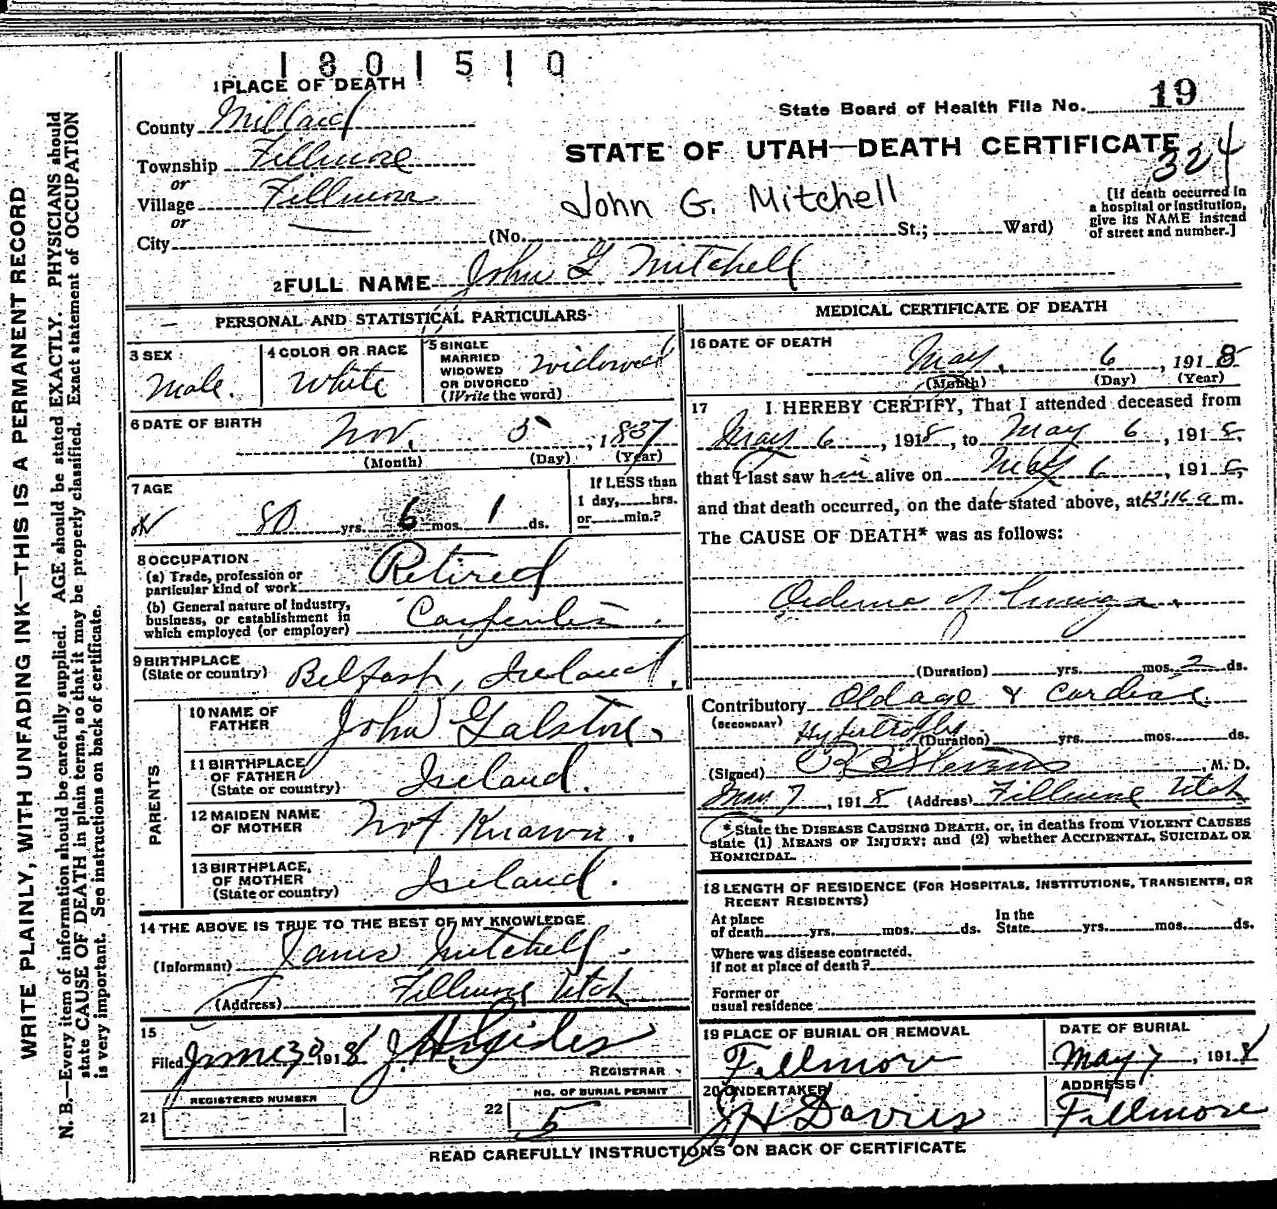 1801510
1 PLACE OF DEATH
State Board of Health File No. 19
County Millard
STATE OF UTAH—DEATH CERTIFICATE
324
Township Fillmore
or
Village Fillmore
or
City
John G. Mitchell
(No. St.; Ward)
[If death occurred in
a hospital or institution,
give its NAME instead
of street and number.]
2 FULL NAME John G Mitchell
PERSONAL AND STATISTICAL PARTICULARS
3 SEX
Male.
4 COLOR OR RACE
White
5 SINGLE
MARRIED
WIDOWED
OR DIVORCED
(Write the word)
Widowed
6 DATE OF BIRTH
Nov. 5, 1837
(Month) (Day) (Year)
7 AGE
80 yrs. 6 mos. 1 ds.
If LESS than
1 day, hrs.
or min.?
8 OCCUPATION
(a) Trade, profession or
particular kind of work Retired
(b) General nature of industry,
business, or establishment in
which employed (or employer) Carpenter.
9 BIRTHPLACE
(State or country) Belfast, Ireland.
PARENTS
10 NAME OF
FATHER John Galston.
11 BIRTHPLACE
OF FATHER
(State or country) Ireland.
12 MAIDEN NAME
OF MOTHER Not Known.
13 BIRTHPLACE,
OF MOTHER
(State or country) Ireland.
14 THE ABOVE IS TRUE TO THE BEST OF MY KNOWLEDGE
(Informant) James Mitchell.
(Address) Fillmore Utah
15
Filed June 30 1918
REGISTRAR
REGISTERED NUMBER
21
NO. OF BURIAL PERMIT
22 5
MEDICAL CERTIFICATE OF DEATH
16 DATE OF DEATH
May, 6, 1918
(Month) (Day) (Year)
17 I HEREBY CERTIFY, That I attended deceased from
May 6, 1918, to May 6, 1918,
that I last saw him alive on May 6, 1918,
and that death occurred, on the date stated above, at 12:16 a m.
The CAUSE OF DEATH* was as follows:
Oedema of Lungs.
(Duration) yrs. mos. 2 ds.
Contributory Oldage & Cardiac
(SECONDARY) Hypertrophy
(Duration) yrs. mos. ds.
(Signed) Stevens, M. D.
May 7, 1918 (Address) Fillmore Utah
*State the DISEASE CAUSING DEATH, or, in deaths from VIOLENT CAUSES
state (1) MEANS OF INJURY; and (2) whether ACCIDENTAL, SUICIDAL OR
HOMICIDAL.
18 LENGTH OF RESIDENCE (FOR HOSPITALS, INSTITUTIONS, TRANSIENTS, OR
RECENT RESIDENTS)
At place
of death yrs. mos. ds.
In the
State yrs. mos. ds.
Where was disease contracted,
if not at place of death?
Former or
usual residence
19 PLACE OF BURIAL OR REMOVAL
Fillmore
DATE OF BURIAL
May 7, 1918
20 UNDERTAKER
J H Davies
ADDRESS
Fillmore
READ CAREFULLY INSTRUCTIONS ON BACK OF CERTIFICATE
WRITE PLAINLY, WITH UNFADING INK—THIS IS A PERMANENT RECORD
N. B.—Every item of information should be carefully supplied. AGE should be stated EXACTLY. PHYSICIANS should
state CAUSE OF DEATH in plain terms, so that it may be properly classified. Exact statement of OCCUPATION
is very important. See instructions on back of certificate.